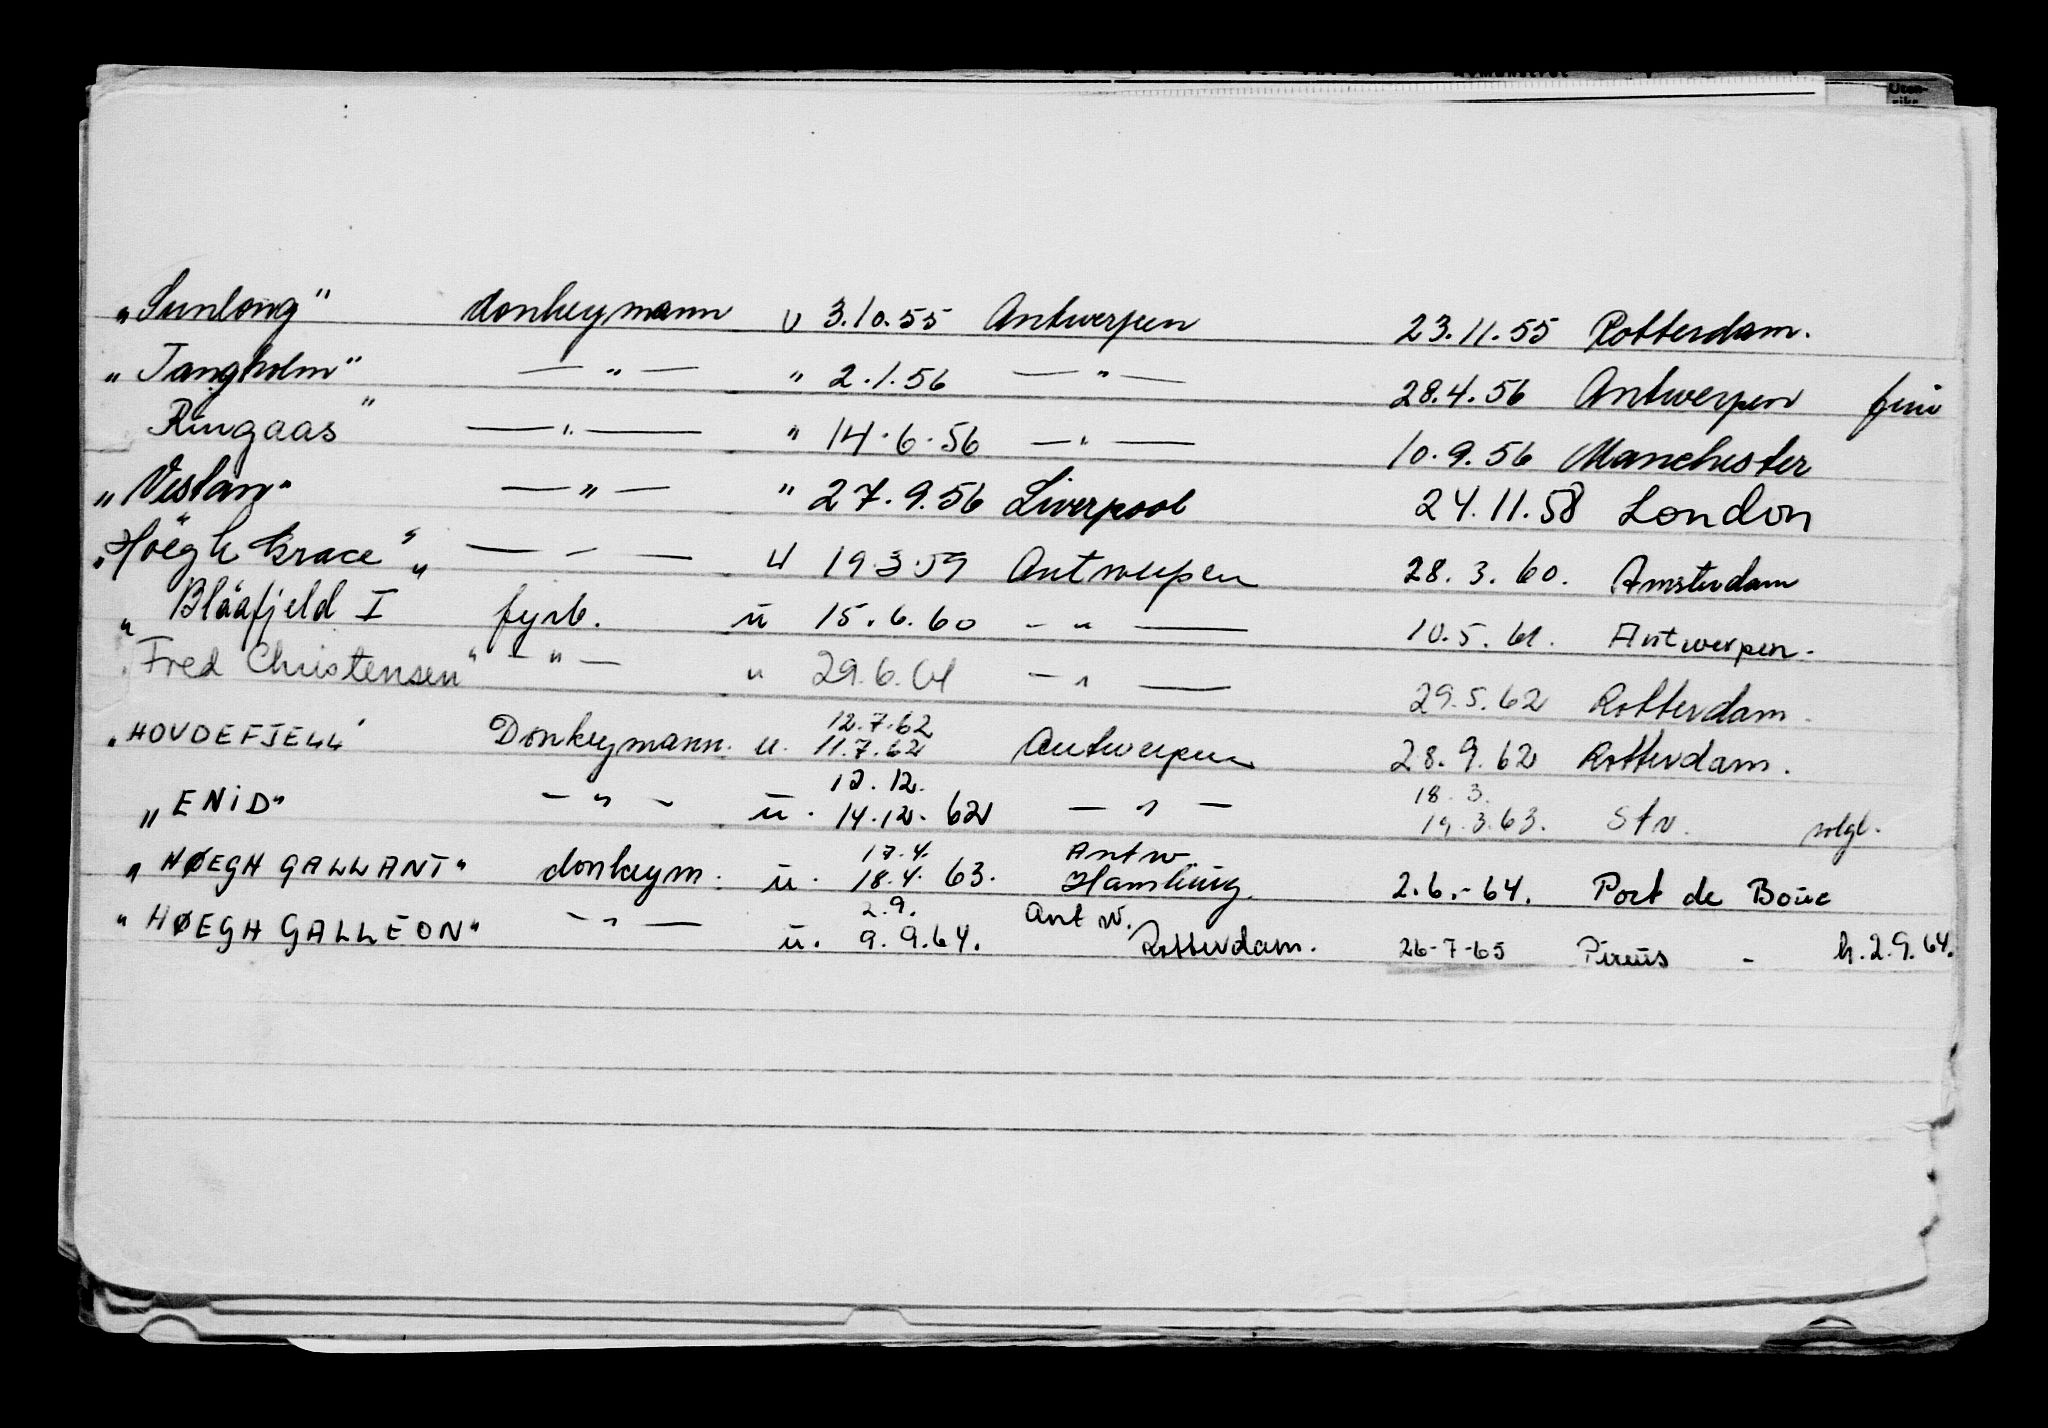 „Sunlong" donkeymann u 3.10.55 Antwerpen 23.11.55 Rotterdam.
„Tangholm" — " — " 2.1.56 — " — 28.4.56 Antwerpen
Ringaas" — " — " 14.6.56 — " — 10.9.56 Manchester
„Vestan" — " — " 27.9.56 Liverpool 24.11.58 London
„Höegh Grace" — " — u 19.3.59 Antwerpen 28.3.60. Amsterdam
„Blåafjeld I" fyrb. u 15.6.60 - " — 10.5.61. Antwerpen.
„Fred Christensen" — " — u 29.6.61 — " — 29.5.62 Rotterdam.
12.7.62
„HOVDEFJELL" Donkeymann. u. 11.7.62 Antwerpen 28.9.62 Rotterdam.
12.12. 18.3.
„ENID" — " — u. 14.12.62 — " — 19.3.63. Stv.
17.4. Antw.
„HØEGH GALLANT" donkeym. u. 18.4.63. Hamburg. 2.6.-64. Port de Bouc
2.9. Antw.
"HØEGH GALLEON" — " — u. 9.9.64. Rotterdam. 26-7-65 Pireus - h.2.9.64.